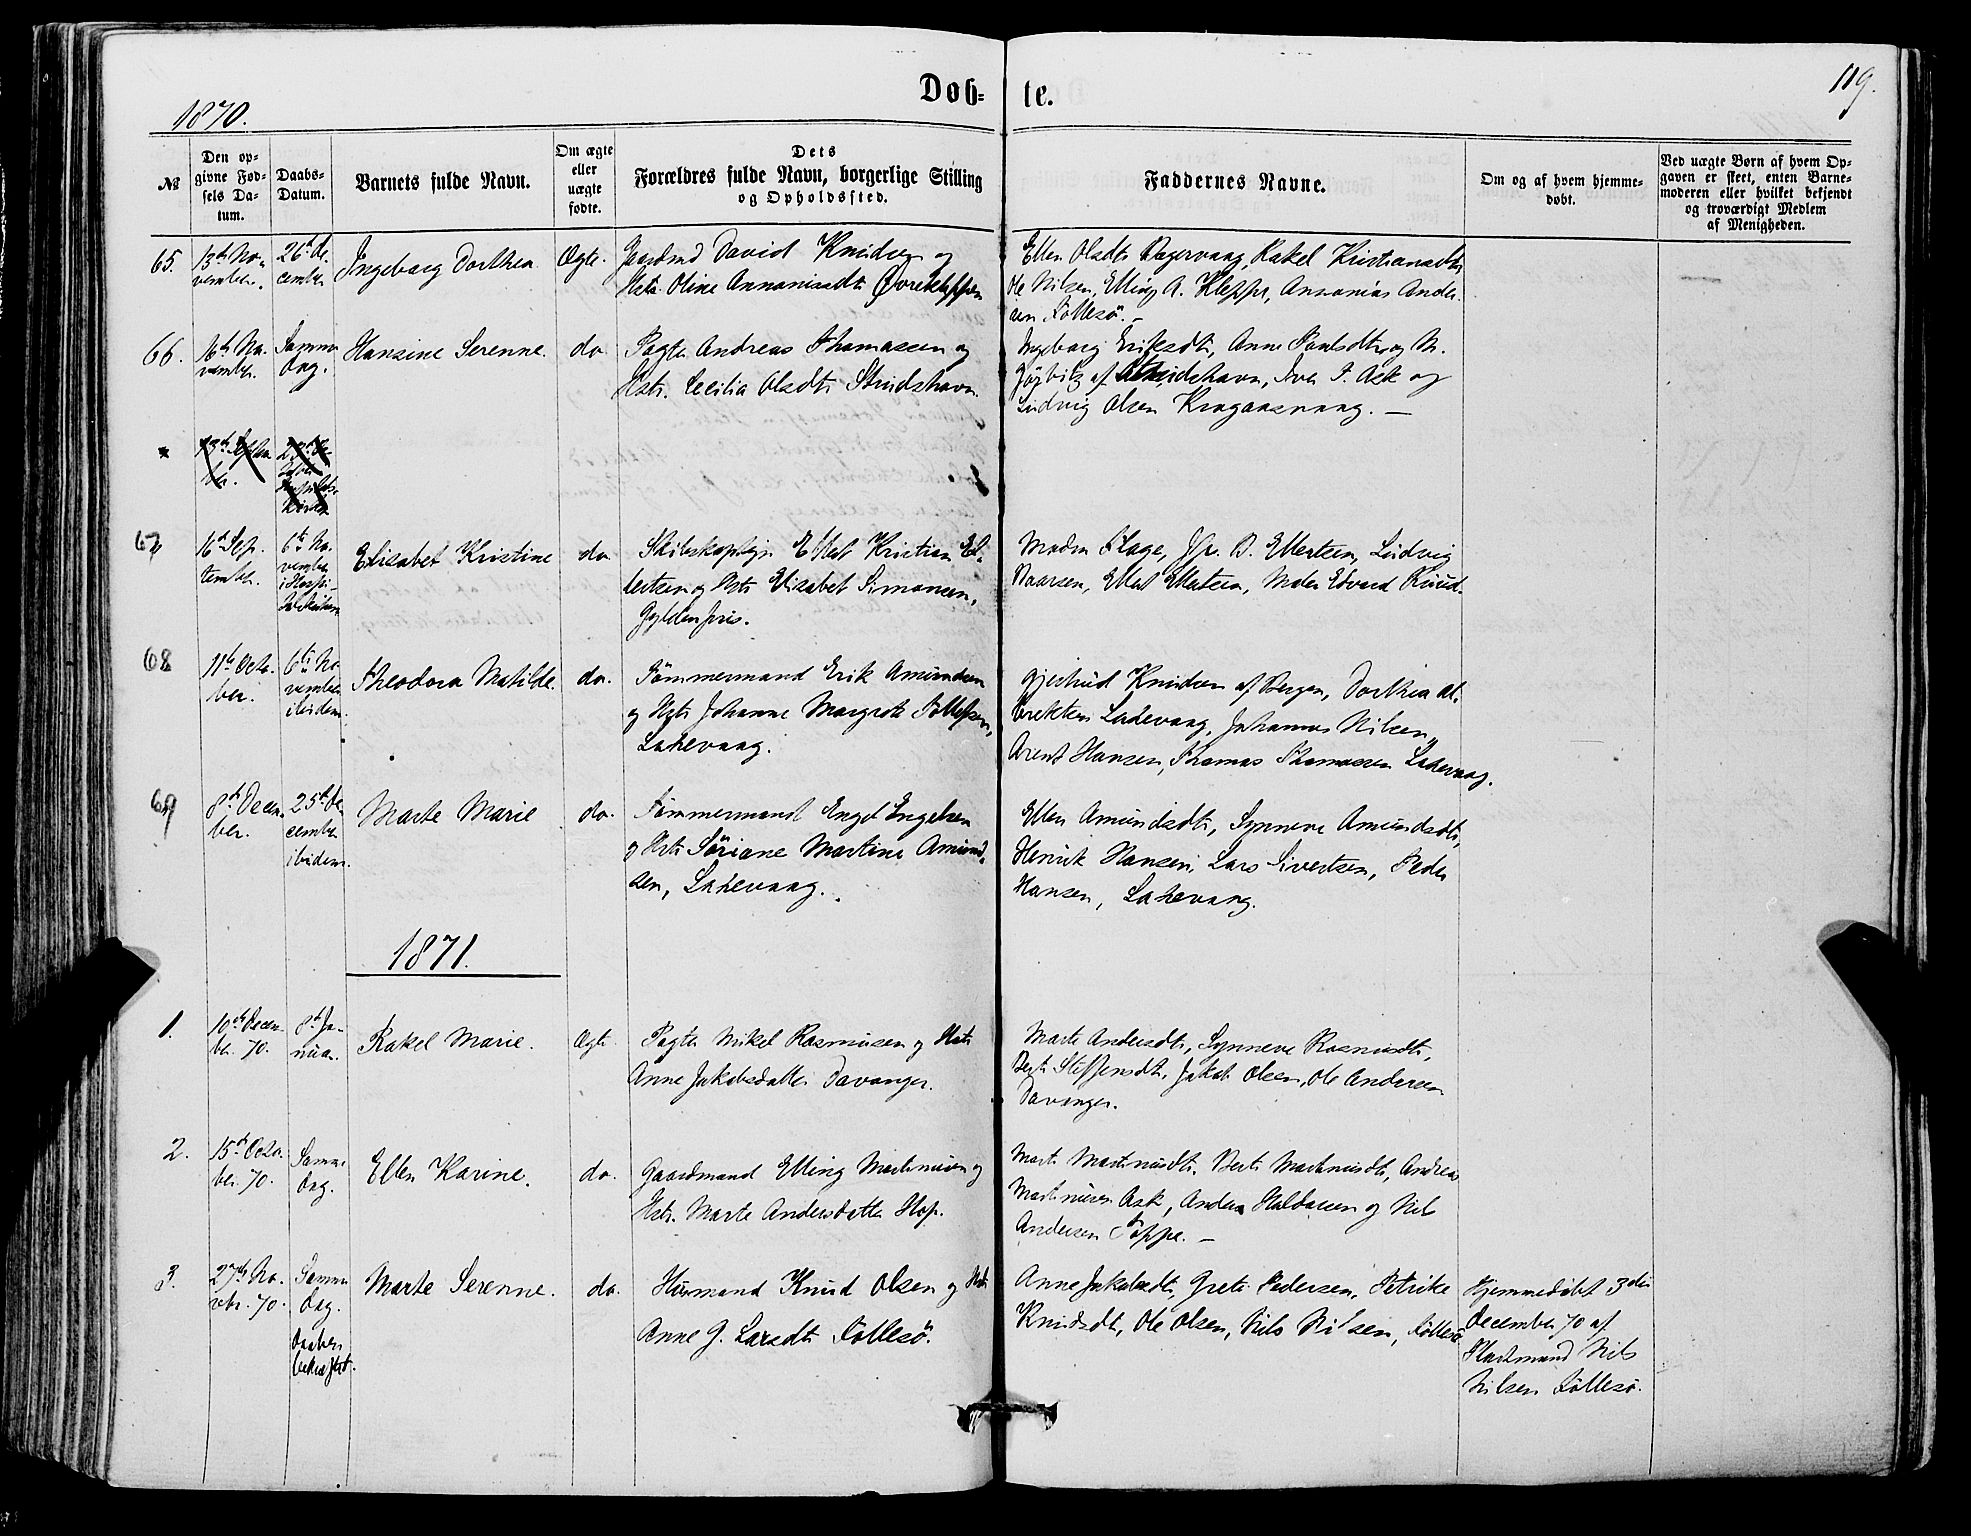 119.
Dob= te.
1870.
№
Den op=
givne Fød=
sels Da=
tum.
Daabs=
Datum.
Barnets fulde Navn.
Om ægte
eller
uægte
fødte.
Dets
Forældres fulde Navn, borgerlige Stilling
og Opholdssted.
Faddernes Navne.
Om og af hvem hjemme=
døbt.
Ved uægte Børn af hvem Op=
gaven er skeet, enten Barne=
moderen eller hvilket bekjendt
og troværdigt Medlem
af Menigheden.
65.
13de No-
vember.
26de De-
cember
Ingeborg Dorthea
Ægte.
Gaardmd David Knudsen og
Hstr. Oline Annaniasdt. Øvrekleppen
Ellen Olsdtr. Ragervaag, Rakel Kristiansdtr
Ole Nilsen, Elling A. Kleppe, Annanias Ander-
sen Follesö. —
66.
16de No-
vember.
Samme
Dag.
Hansine Serenne.
do
Pagter Andreas Thomassen og
Hstr. Cecilia Olsdtr Strudshavn.
Ingeborg Eriksdt, Anne Paulsdtr og M.
af Strudshavn, Iver P. Ask og
Ludvig Olsen Kragaasvaag. —
67
16de Sep-
tember.
6te No-
vember
i Hospi-
talskirken
Elisabet Kristine
do
Skibskaptejn Ellert Kristian El-
lertsen og Hstr Elisabet Simonsen,
Gyldenpris.
Madm Flage, Jfr. B. Ellertsen, Ludvig
Baarsen, Ellert Ellertsen, Maler Edvard Knud-
68
11te Octo-
ber.
6te No
vember
ibidem.
Theodora Matilde.
do.
Tømmermand Erik Amundsen
og Hstr Johanne Margrete Tollefsen,
Laxevaag.
Gjertrud Knudsen af Bergen, Dorthea Al-
brektsen Laxevaag, Johannes Nilsen,
Arent Hansen, Thomas Thomassen Laxevaag.
69
8de Decem-
ber.
25de De-
cember
ibidem.
Marte Marie
do.
Tømmermand Engel Engelsen
og Hstr Søriane Martine Amund-
sen, Laxevaag.
Ellen Amundsdtr, Synneve Amundsdtr,
Henrik Hansen, Lars Sivertsen, Peder
Hansen, Laxevaag.
1871.
1.
10de Decem-
ber. 70.
8de Ja-
nuar.
Rakel Marie.
Ægte.
Pagter Mikel Rasmusen og Hstr
Anne Jakobsdatter Davanger.
Marte Andersdtr, Synneve Rasmusdtr,
Berte Steffensdt. Jakob Olsen, Ole Andersen
Davanger.
2.
15de Octo-
ber. 70.
Samme
Dag.
Ellen Karine.
do.
Gaardmand Elling Martinusen og
Hstr. Marte Andersdatter Hop.
Marte Martinusdtr. Berte Martinusdt, Andreas
Martinusen Ask, Anders Haldorsen og Nils
Andersen Tøppe. —
3.
27de No-
vbr. 70.
Samme
Dag.
Daaben
bekræftet.
Marte Serenne.
do.
Husmand Knud Olsen og Hstr
Anne G. Larsdtr Follesö.
Anne Jakobsdt, Grete Pedersen, Petrike
Knudsdt, Ole Olsen, Nils Nilsen, Follesö
Hjemmedøbt 3die
December 70 af
Pladsmand Nils
Nilsen Follesö.